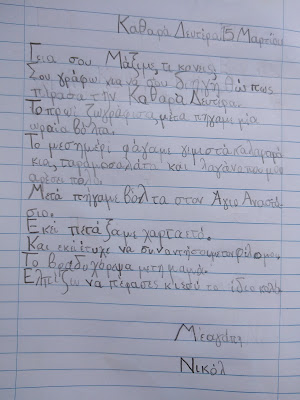 Καθαρά Δευτέρα 15 Μαρτίου
Γεια σου Μάξιμε, τι κανεις
Σου γράφω για να σου διηγηθώ πως
πέρασα την Καθαρά Δευτέρα.
Το πρωί ζωγράφισα, μετά πήγαμε μία
ωραία βόλτα.
Το μεσημέρι φάγαμε γεμιστά καλαμαρά
κια, ταραμοσαλάτα και λαγάνα που μου
αρέσει πολύ.
Μετά πήγαμε βόλτα στον Άγιο Αναστά
σιο.
Εκεί πετάξαμε χαρταετό.
Και εκεί έτυχε να συναντήσουμε
Το βράδυ χόρεψα με τη μαμά.
Ελπίζω να πέρασες κι εσύ το ίδιο καλά
Με αγάπη
Νικόλ